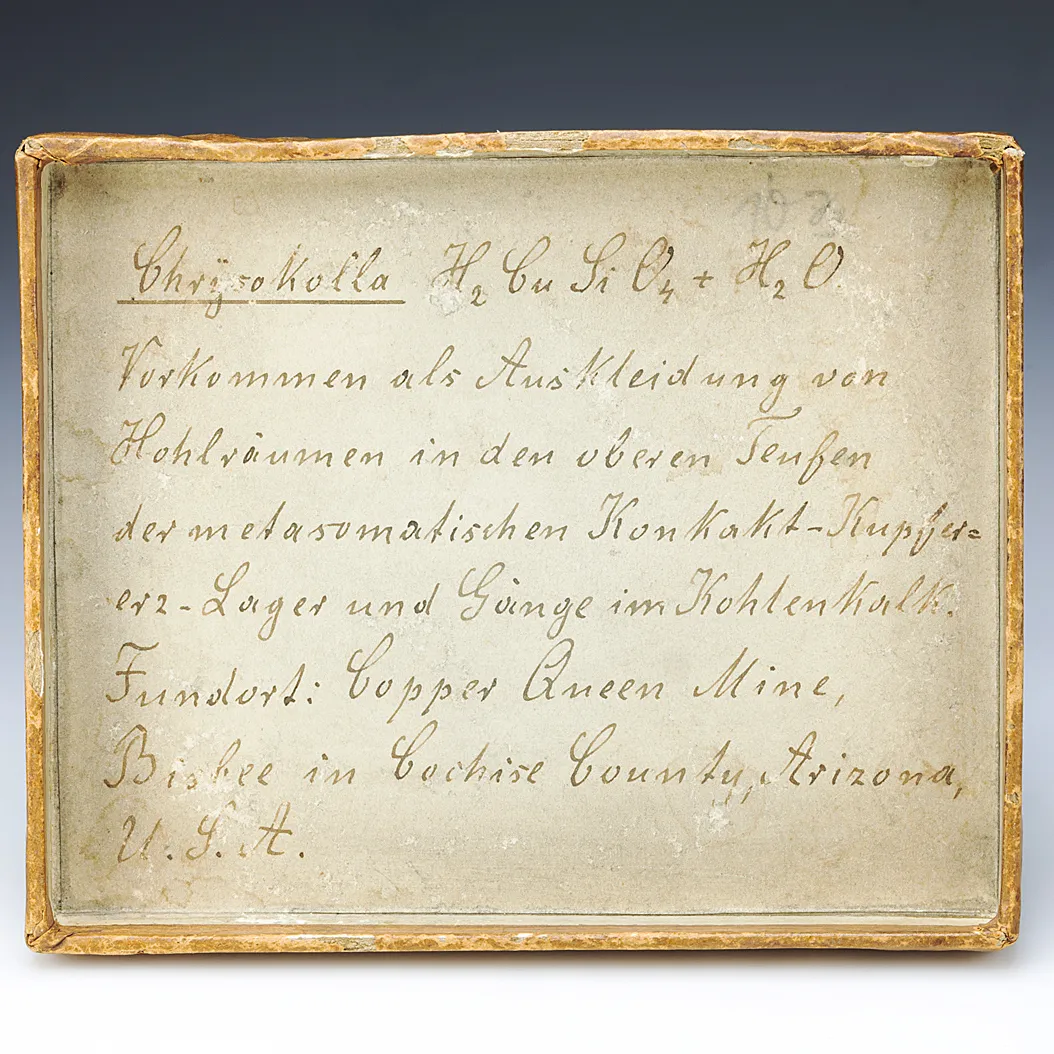 Chrysokolla H₂CuSiO₄ + H₂O.
Vorkommen als Auskleidung von
Hohlräumen in den oberen Teufen
der metasomatischen Konkakt-Kupfer=
erz-Lager und Gänge im Kohlenkalk.
Fundort: Copper Queen Mine,
Bisbee in Cochise County, Arizona,
U.S.A.